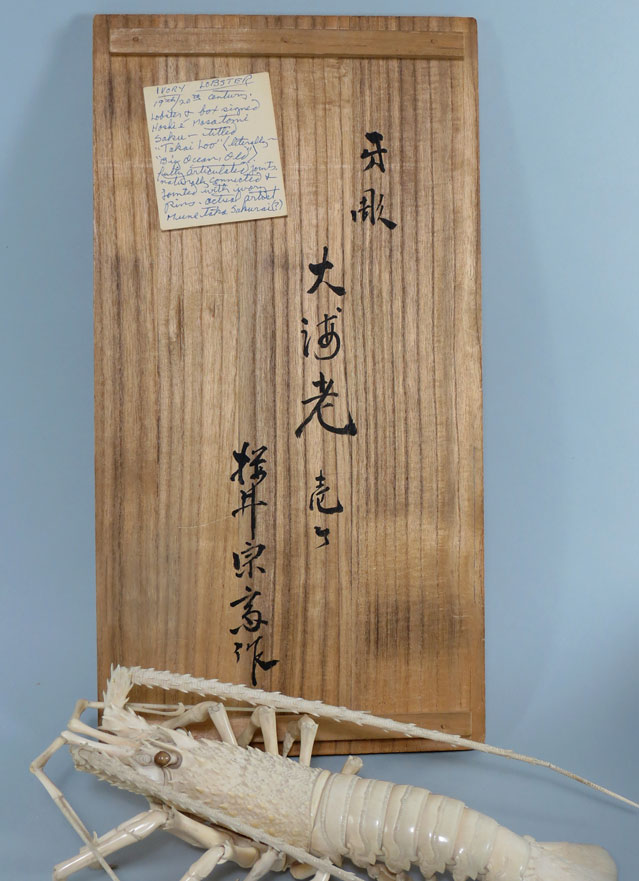 IVORY LOBSTER
19th/20th century.
Lobster & box signed
Hoshi & Masatomi
Saku – titled
"Takai Loo" (literally –
"Big Ocean, Old").
fully articulated joints
naturally connected &
jointed with ivory
Pins. actual artist
Mune taka Sakurai(?)
牙彫
大海老 壱ケ
桜井宗高作